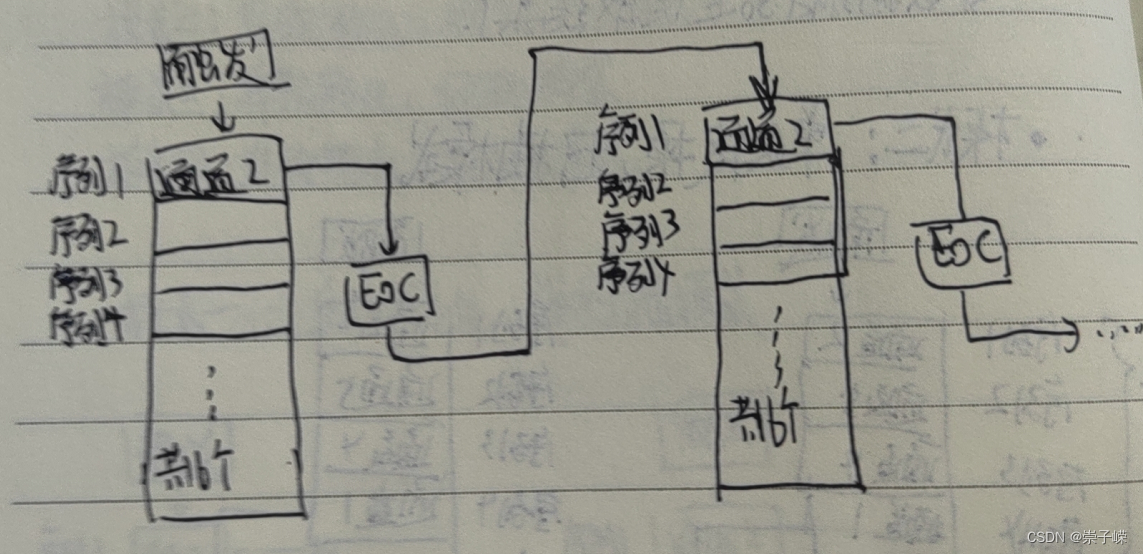 触发
序列1 通道2
序列2
序列3
序列4
共16个
EOC
序列1 通道2
序列2
序列3
序列4
共16个
EOC
......
CSDN @崇子嵘